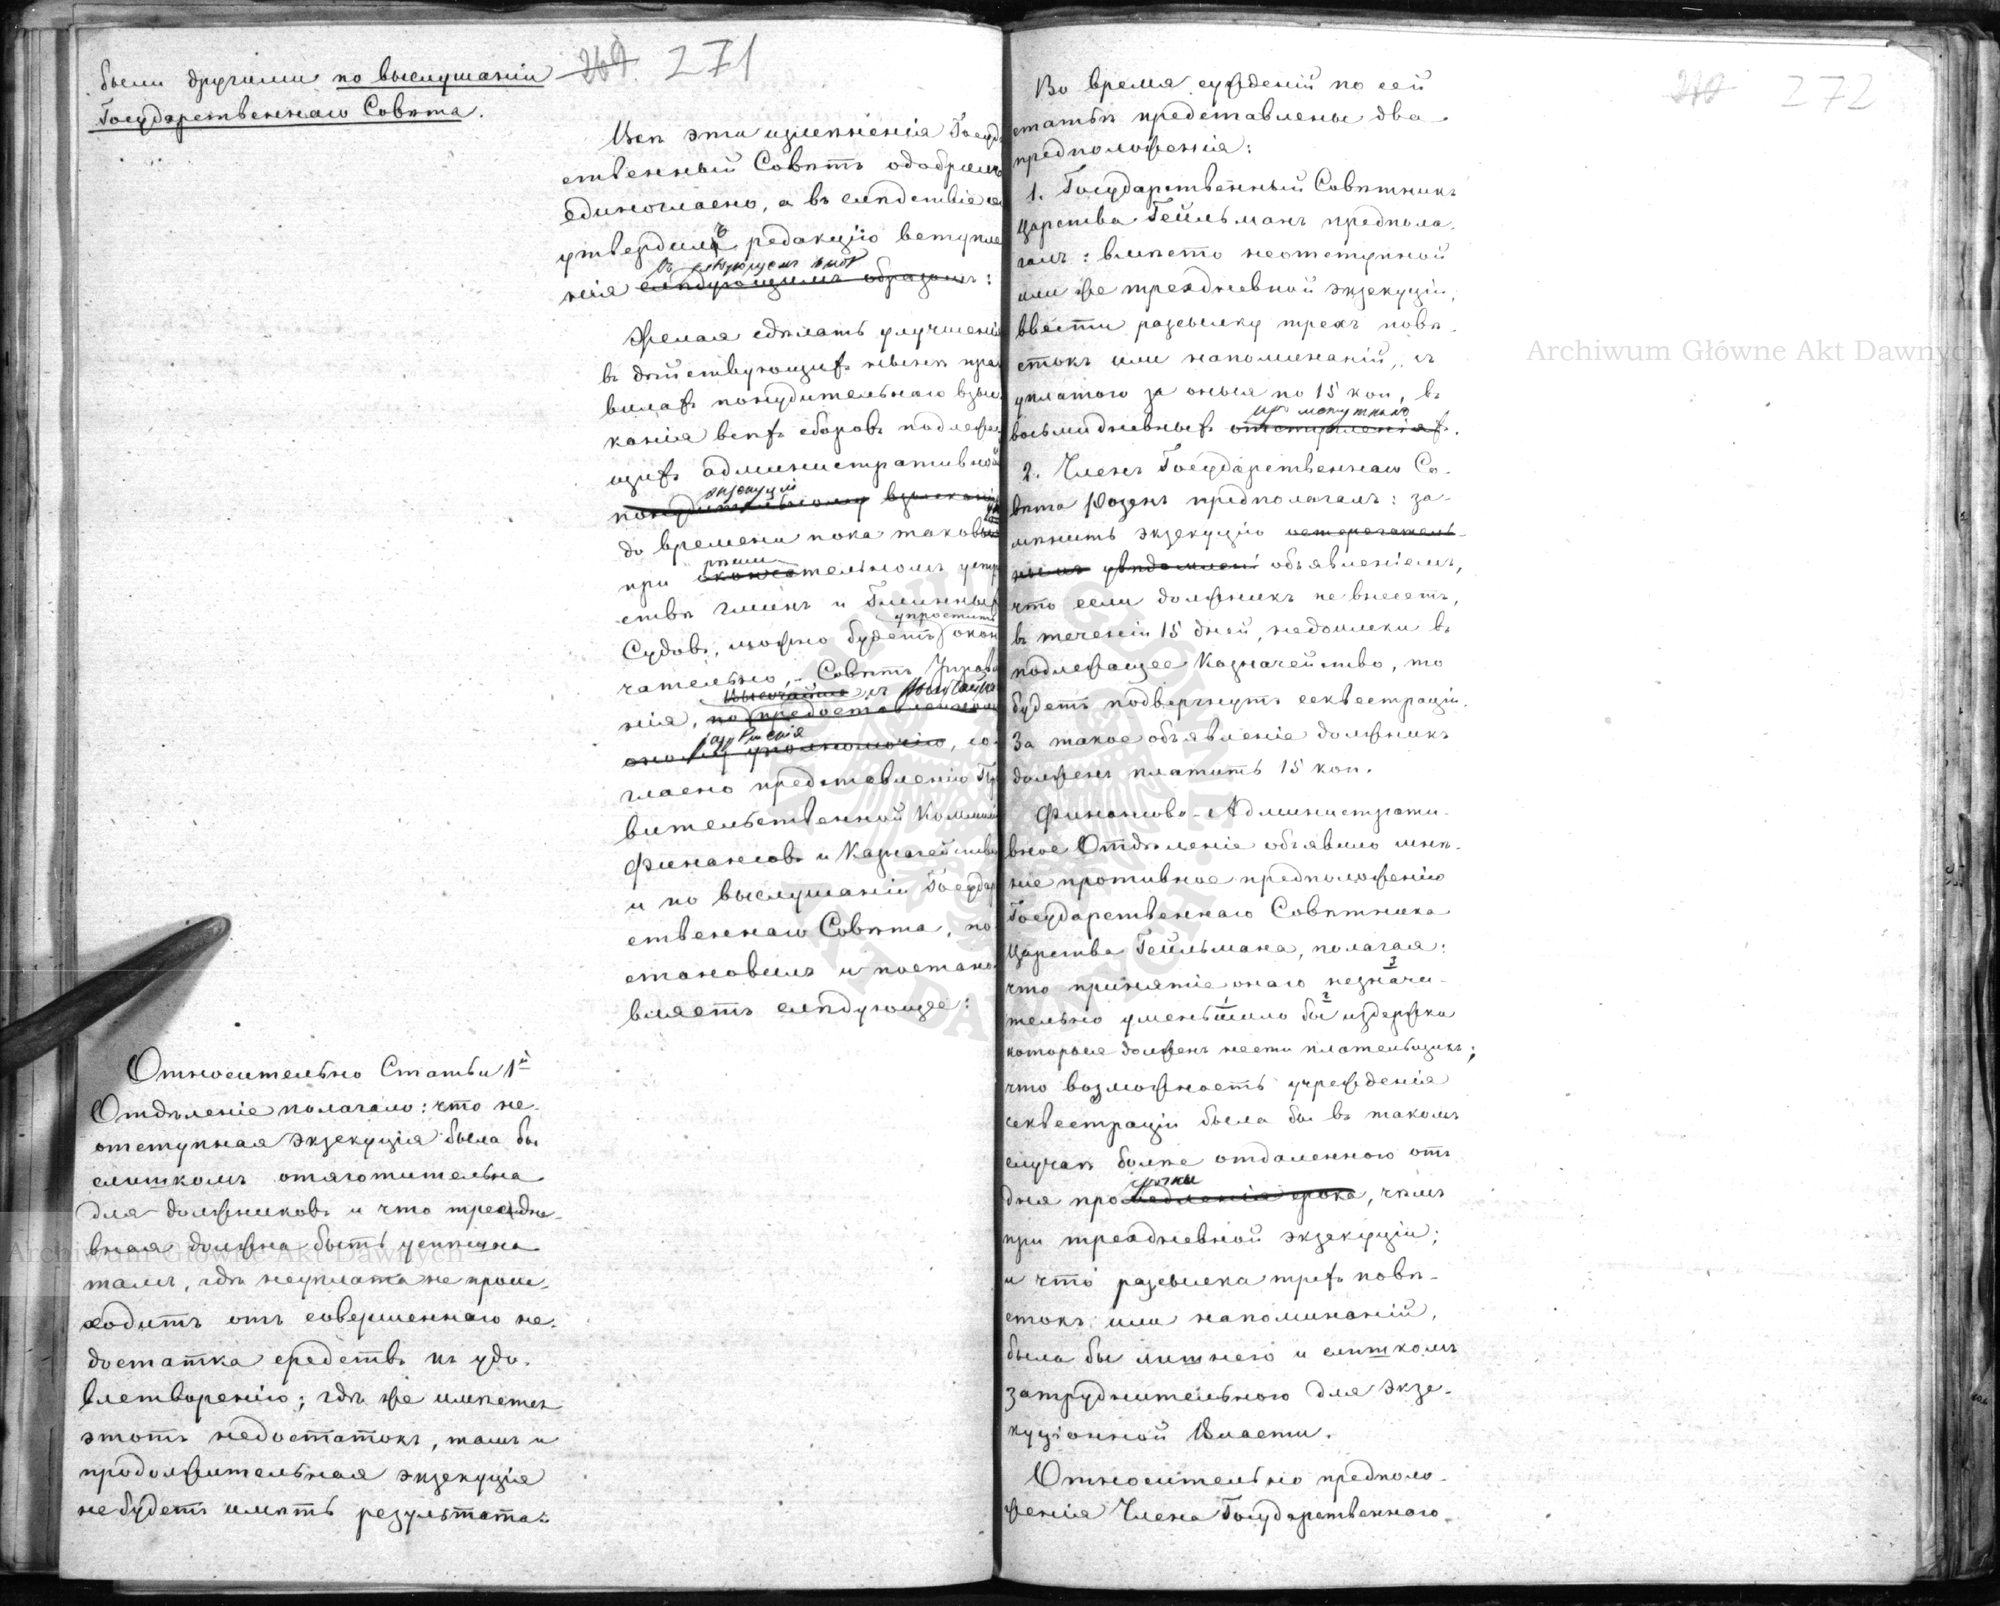 были другими по выслушаніи
Государственнаго Совѣта.
269. 271
Всѣ эти измѣненія Госуд
ственный Совѣтъ одобрилъ
единогласно, а въ слѣдствіе
утвердилъ редакцію вступле
нія слѣдующимъ образомъ:
Желая сдѣлать улучшенія
въ дѣйствующихъ нынѣ пра
вилахъ понудительнаго взыс
канія всѣхъ сборовъ подлежа
щихъ административной
экзекуціи
понудительному взысканію
до времени пока таковыя
при окончательномъ устр
ствѣ гминъ и Гминныхъ
упростить
Судовъ, можно будетъ окон
чательно, Совѣтъ Управле
нія, по предоставленному
оному уполномочію, со
гласно представленію Пра
вительственной Коммисіи
Финансовъ и Казначейства
и по выслушаніи Государ
ственнаго Совѣта, по
становилъ и постано
вляетъ слѣдующее:
Относительно Статьи 1й
Отдѣленіе полагало: что не-
отступная экзекуція была бы
слишкомъ отяготительна
для должниковъ и что трехдне-
вная должна быть успѣшна
тамъ, гдѣ неуплата не проис-
ходитъ отъ совершеннаго не-
достатка средствъ къ удо-
влетворенію; гдѣ же имѣется
этотъ недостатокъ, тамъ и
продолжительная экзекуція
не будетъ имѣть результата.
270 272
Во время сужденій по сей
статьѣ представлены два
предположенія:
1. Государственный Совѣтникъ
Царства Гейльманъ предпола-
галъ: вмѣсто неотступной
или же трехдневной экзекуціи,
ввести разсылку трехъ повѣ-
стокъ или напоминаній, съ
уплатою за оныя по 15 коп, въ
промежуткахъ
восьмидневныхъ отступленіяхъ.
2. Членъ Государственнаго Со-
вѣта Розенъ предполагалъ: за-
мѣнить экзекуцію остерегатель-
нымъ увѣдомлені объявленіемъ,
что если должникъ не внесетъ,
въ теченіи 15 дней, недоимки въ
подлежащее Казначейство, то
будетъ подвергнутъ секвестраціи.
За такое объявленіе должникъ
долженъ платить 15 коп.
Финансово-Администрати-
вное Отдѣленіе объявило мнѣ-
ніе противное предположенію
Государственнаго Совѣтника
Царства Гейльмана, полагая:
что принятіе онаго незначи-
тельно уменьшило бы издержки
которыя долженъ нести плательщикъ;
что возможность учрежденія
секвестраціи была бы въ такомъ
случаѣ болѣе отдаленною отъ
срочки
дня промедленія срока, чѣмъ
при трехдневной экзекуціи;
и что разсылка трехъ повѣ-
стокъ или напоминаній,
была бы лишнею и слишкомъ
затруднительною для экзе-
куціонной Власти.
Относительно предполо-
женія Члена Государственнаго
Archiwum Główne Akt Dawnych
Archiwum Główne Akt Dawnych